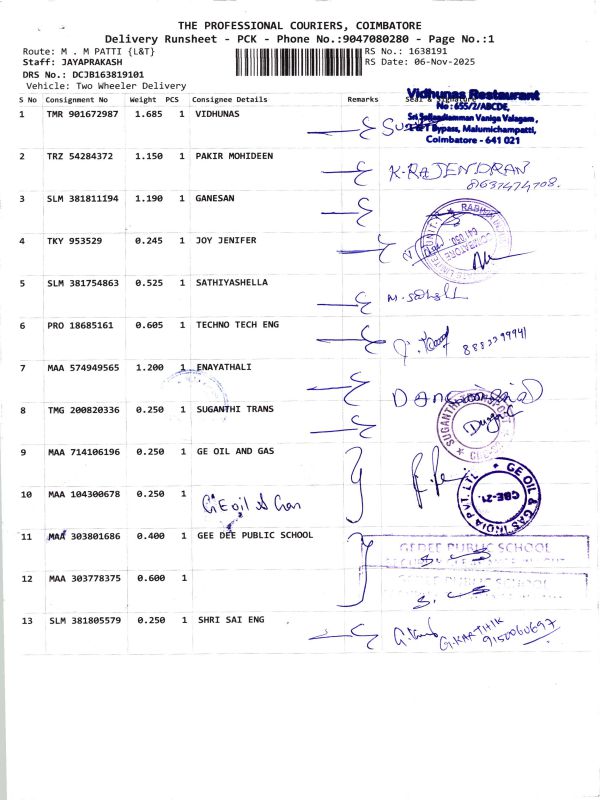 THE PROFESSIONAL COURIERS, COIMBATORE
Delivery Runsheet - PCK - Phone No.:9047080280 - Page No.:1
Route: M . M PATTI {L&T} RS No.: 1638191
Staff: JAYAPRAKASH RS Date: 06-Nov-2025
DRS No.: DCJB163819101
Vehicle: Two Wheeler Delivery
S No Consignment No Weight PCS Consignee Details Remarks Seal & Signature
Vidhunas Restaurant
No : 655/2/ABCDE,
Vaniga Valagam,
L & T Bypass, Malumichampatti,
Coimbatore - 641 021
1 TMR 901672987 1.685 1 VIDHUNAS
2 TRZ 54284372 1.150 1 PAKIR MOHIDEEN K. RAJENDRAN
8637474708.
3 SLM 381811194 1.190 1 GANESAN
4 TKY 953529 0.245 1 JOY JENIFER
5 SLM 381754863 0.525 1 SATHIYASHELLA
6 PRO 18685161 0.605 1 TECHNO TECH ENG
7 MAA 574949565 1.200 1 ENAYATHALI
8 TMG 200820336 0.250 1 SUGANTHI TRANS
SUGANTHI
9 MAA 714106196 0.250 1 GE OIL AND GAS
GE OIL & GAS INDIA PVT. LTD
CBE-21.
10 MAA 104300678 0.250 1 GE oil & Gas
11 MAA 303801686 0.400 1 GEE DEE PUBLIC SCHOOL
GEDEE PUBLIC SCHOOL
12 MAA 303778375 0.600 1
GEDEE PUBLIC SCHOOL
13 SLM 381805579 0.250 1 SHRI SAI ENG
G.KARTHIK
9150060697